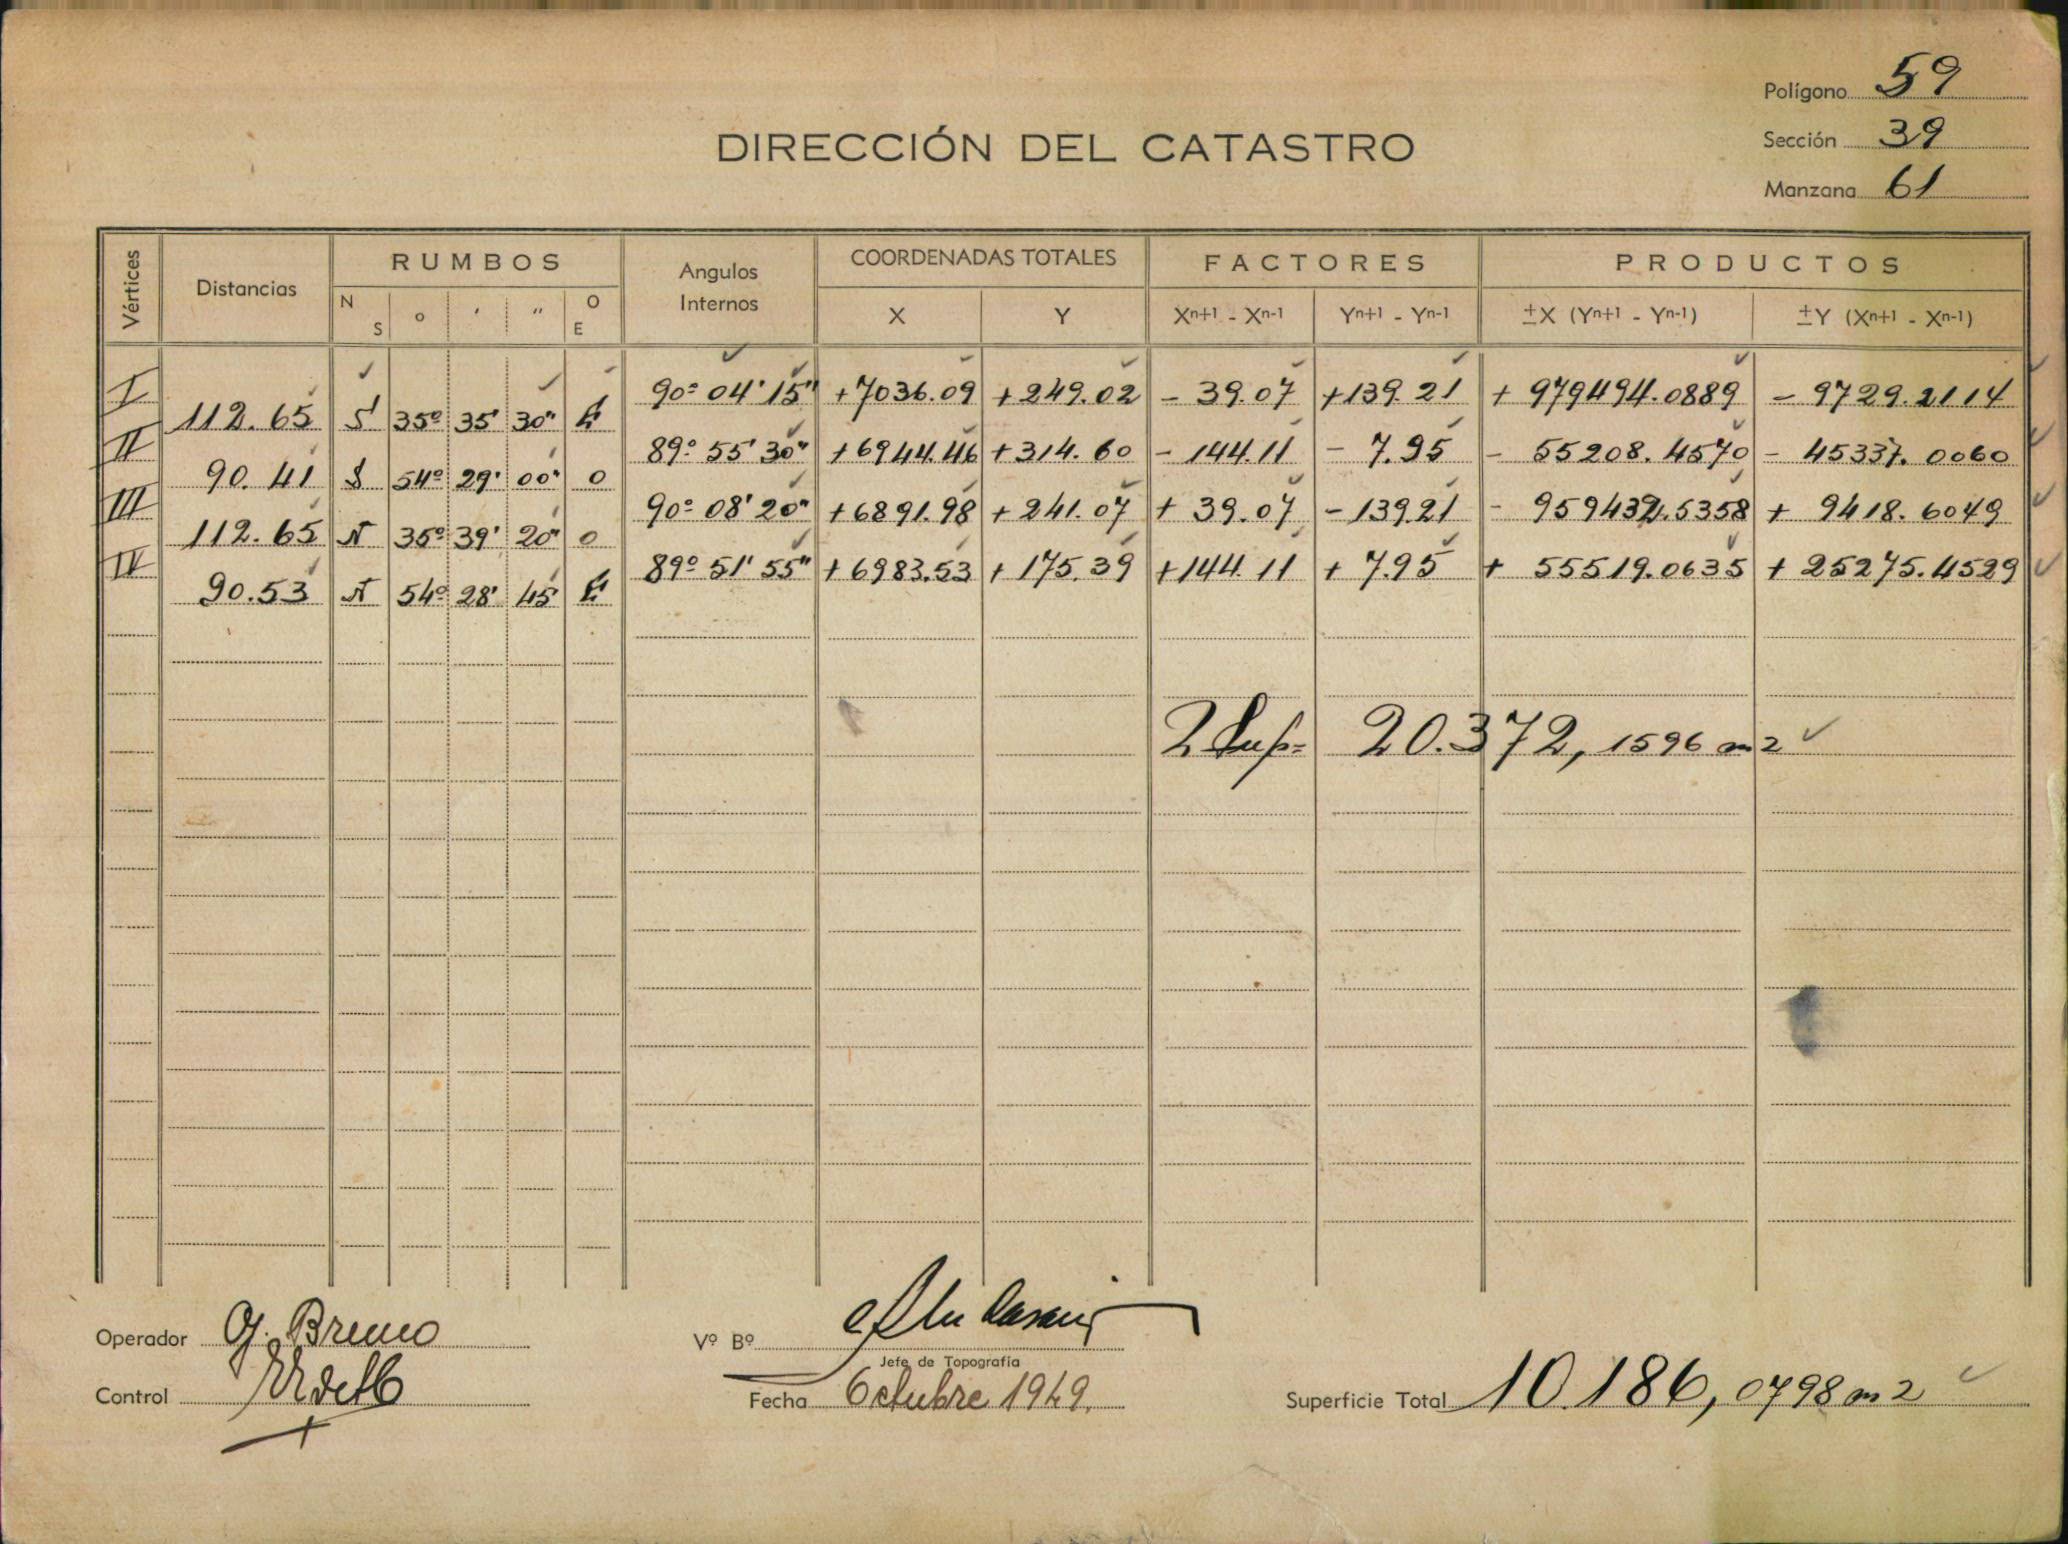 Polígono 59
DIRECCIÓN DEL CATASTRO
Sección 39
Manzana 61
Vértices Distancias RUMBOS Angulos Internos COORDENADAS TOTALES FACTORES PRODUCTOS
N S o ' " O E X Y Xn+1 - Xn-1 Yn+1 - Yn-1 ±X (Yn+1 - Yn-1) ±Y (Xn+1 - Xn-1)
I 90º 04' 15" +7036.09 +249.02 - 39.07 +139.21 + 979494.0889 - 9729.2114
112.65 S 35º 35' 30" E
II 89º 55' 30" +6944.46 +314.60 - 144.11 - 7.95 - 55208.4570 - 45337.0060
90.41 S 54º 29' 00" O
III 90º 08' 20" +6891.98 +241.07 + 39.07 -139.21 - 959432.5358 + 9418.6049
112.65 N 35º 39' 20" O
IV 89º 51' 55" +6983.53 +175.39 +144.11 + 7.95 + 55519.0635 + 25275.4529
90.53 N 54º 28' 45 E
2 Sup= 20.372,1596 m2
Operador G. Bruno
Vº Bº
Jefe de Topografía
Control
Fecha Octubre 1949.
Superficie Total 10.186,0798 m2